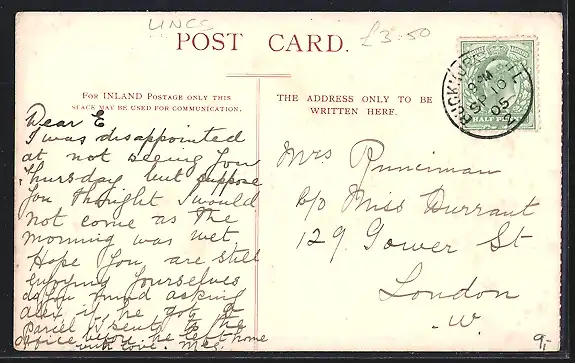 LINCS
£3.50
POST CARD.
FOR INLAND POSTAGE ONLY THIS
SPACE MAY BE USED FOR COMMUNICATION.
THE ADDRESS ONLY TO BE
WRITTEN HERE.
BUCKHURST HILL
8 PM
SP 10
05
HALF PENNY
Dear E
I was disappointed
at not seeing you
Thursday but suppose
you thought I would
not come as the
morning was wet.
Hope you are still
enjoying yourselves
do you mind asking
Alex if he got the
parcel I sent to the
office before he left home
with love. M.E.S.
Mrs Runciman
c/o Miss Durrant
129. Gower St
London
W.
9,-